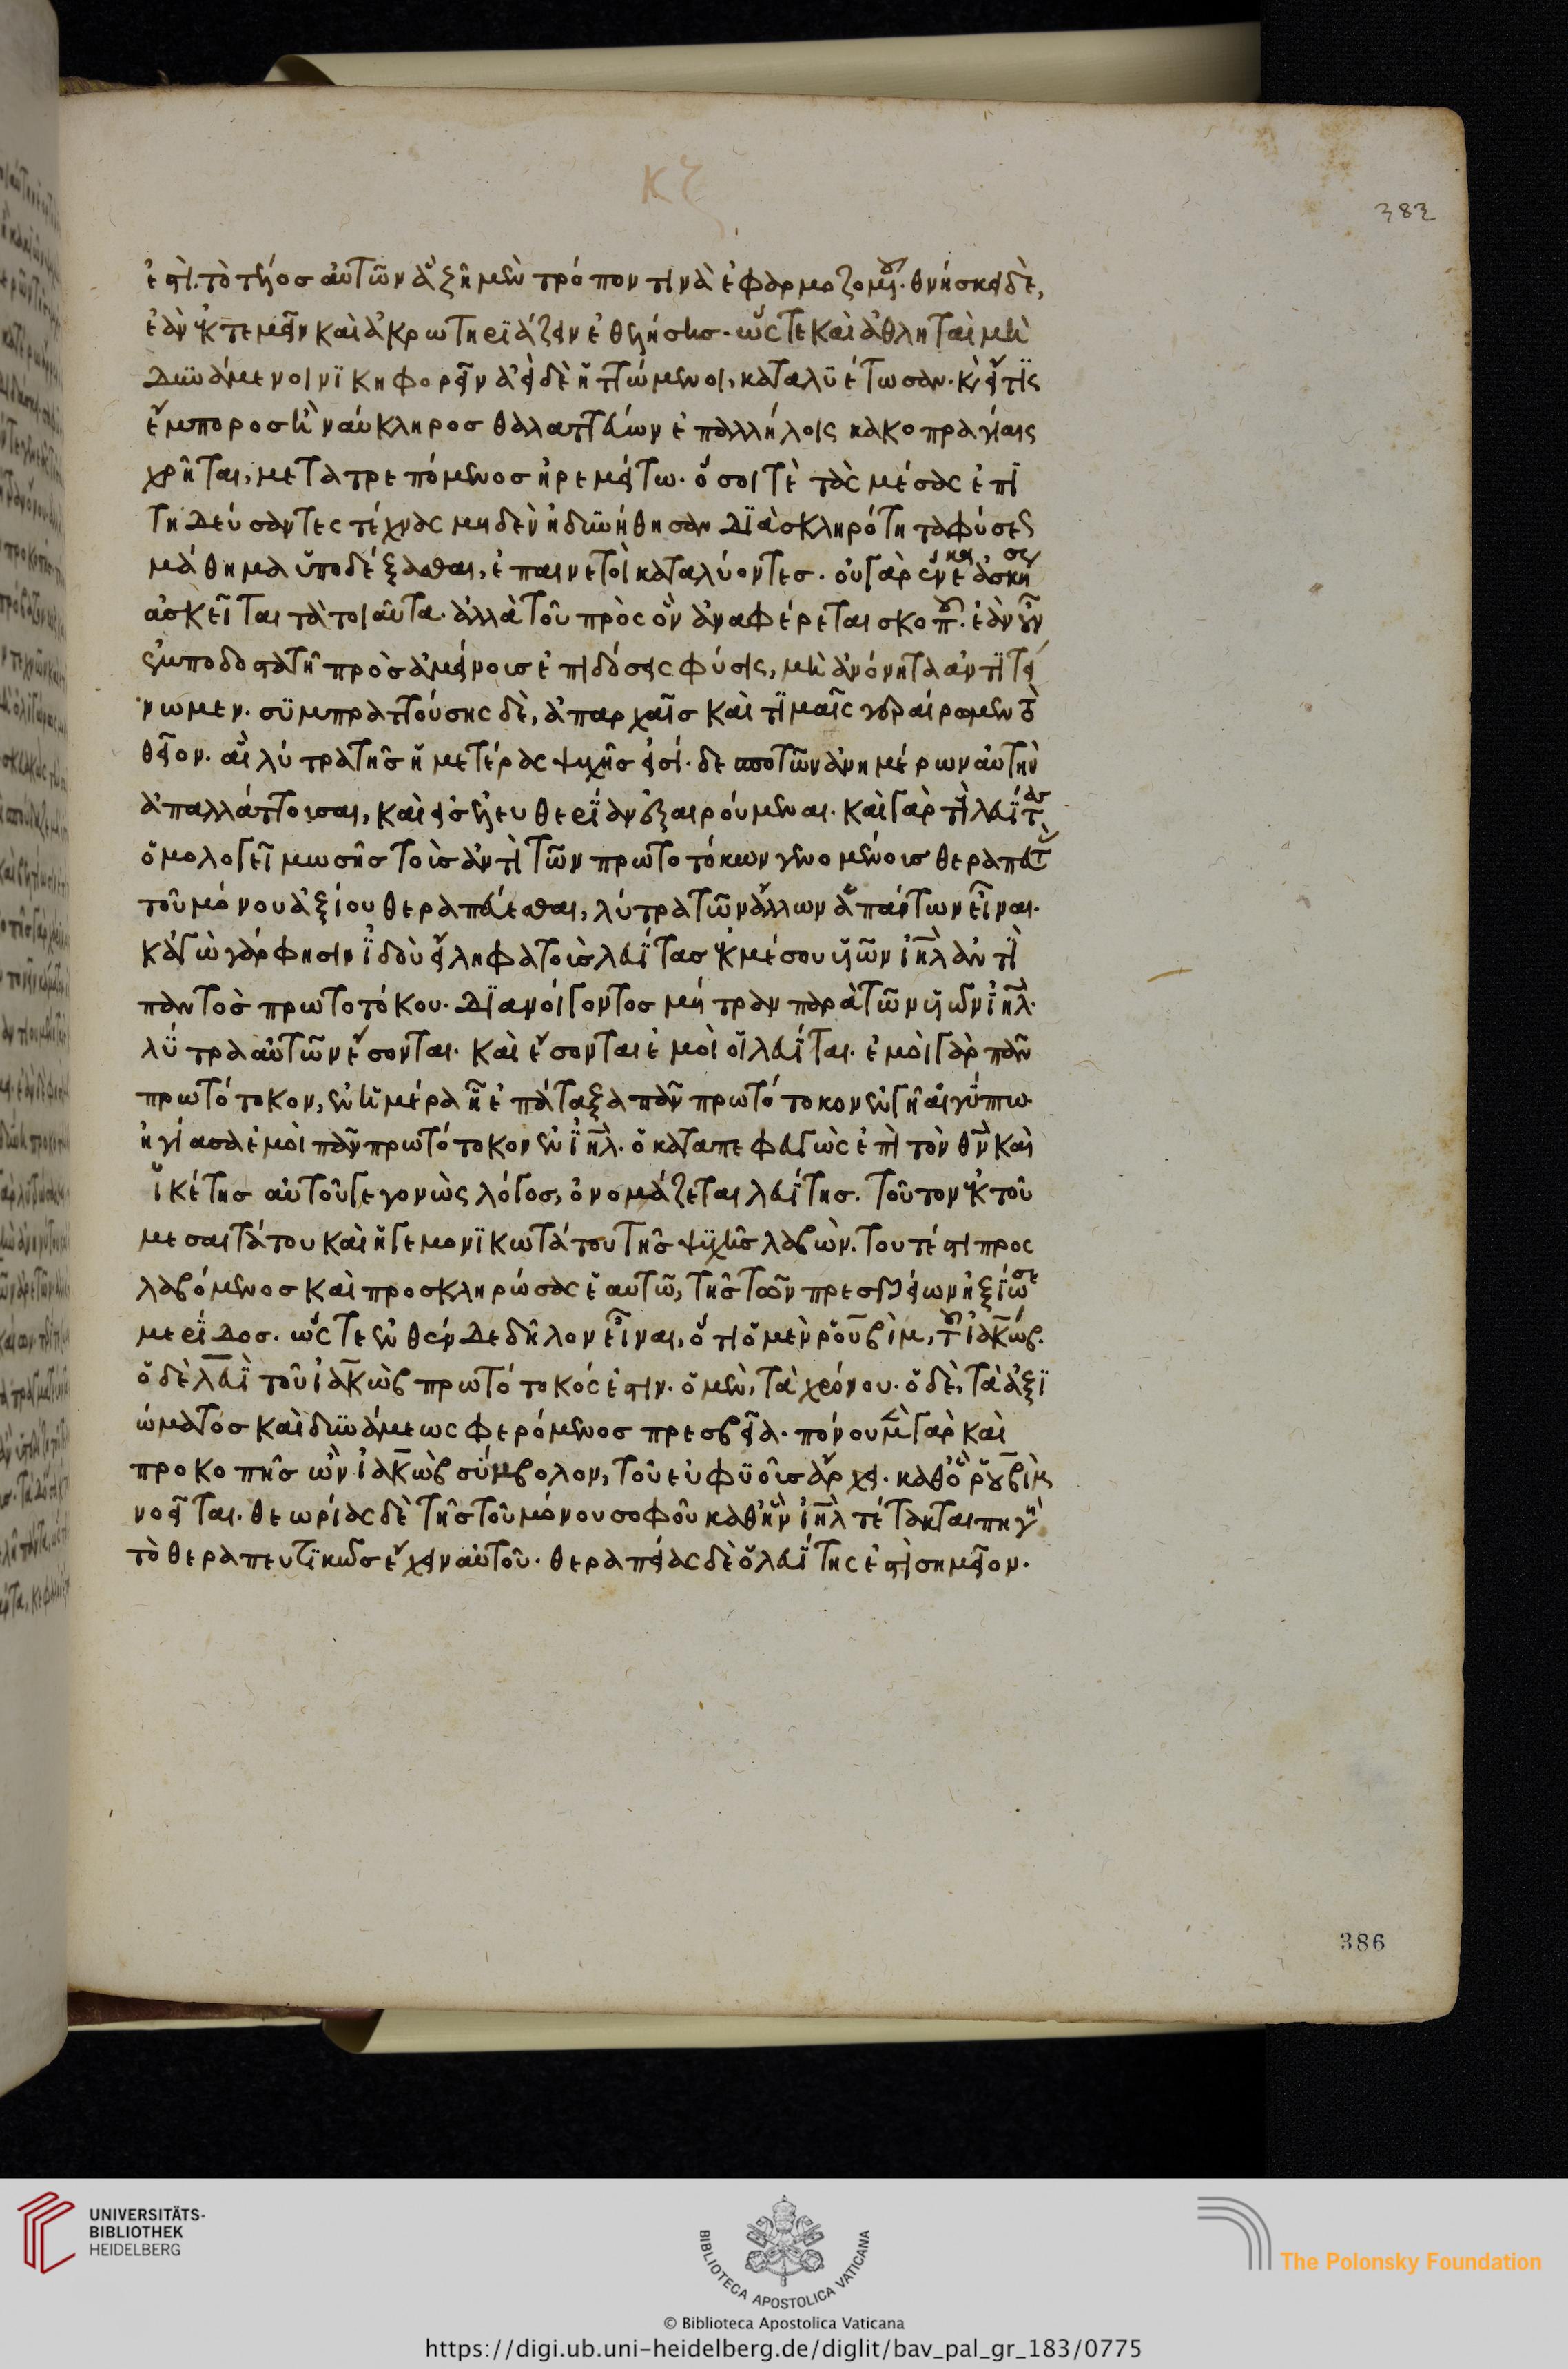 κζ
382
ἐστὶ. τὸ τέλοσ αὐτῶν ἃ ζῆ μὲν τρόπον τινὰ ἐφαρμοζομένου. θνήσκει δὲ,
ἐὰν ἐκτεμεῖν καὶ ἀκρωτηριάζειν ἐθελήσησ. ὥστε καὶ ἀθληταὶ μὴ
δυνάμενοι νικηφορεῖν ἀεὶ δὲ ἡττώμενοι, καταλυέτωσαν. κ(αὶ) εἴ τις
ἔμποροσ ἢ ναύκληροσ θαλαττεύων ἐπαλλήλοις κακοπραγίαις
χρῆται, μετατρεπόμενοσ ἠρεμείτω. ὅσοι τὲ τὰς μέσας ἐπι
τηδεύσαντες τέχνας μηδὲν ἠδυνήθησαν διὰ σκληρότητα φύσεως
μάθημα ὑποδέξασθαι, ἐπαινετοὶ καταλύοντεσ. οὐ γὰρ ἕνεκα ἀσκήσεως
ἀσκεῖται τὰ τοιαῦτα. ἀλλὰ τοῦ πρὸς ὃν ἀναφέρεται σκοποῦ. ἐὰν οὖν
ἐμποδοστατῆ πρὸσ ἀμείνουσ ἐπιδόσεις φύσις, μὴ ἀνόνητα ἀντιτεί
νωμεν. συμπραττούσης δὲ, ἀπαρχαῖσ καὶ τιμαῖς γεραίρωμεν τὸ
θεῖον. αἳ λύτρα τῆσ ἡμετέρας ψυχῆσ εἰσί. δεσποτῶν ἀνημέρων αὐτὴν
ἀπαλλάττουσαι, καὶ εἰσ ἐλευθερίαν ἐξαιρούμεναι. καὶ γὰρ τὶ λευίτας
ὁμολογεῖ μωσῆσ τοὺσ ἀντὶ τῶν πρωτοτόκων γενομένουσ θεραπευτὰς
τοῦ μόνου ἀξίου θεραπεύεσθαι, λύτρα τῶν ἄλλων ἁπάντων εἶναι.
κἀγὼ γάρ φησιν ἰδοὺ εἴληφα τοὺσ λευίτασ ἐκ μέσου υἱῶν ἰηλ ἀντὶ
παντοσ πρωτοτόκου. διανοίγοντοσ μήτραν παρὰ τῶν υἱῶν ἰηλ.
λύτρα αὐτῶν ἔσονται. καὶ ἔσονται ἐμοὶ οἱ λευίται. ἐμοὶ γὰρ πᾶν
πρωτότοκον, ἐν ἡμέρα ἧ ἐπάταξα πᾶν πρωτότοκον ἐν γῆ αἰγύπτω
ἡγίασα ἐμοὶ πᾶν πρωτότοκον ἐν ἰηλ. ὁ καταπεφευγὼς ἐπὶ τὸν θν καὶ
ἱκέτησ αὐτοῦ γεγονὼς λόγοσ, ὀνομάζεται λευίτησ. τοῦτον ἐκ τοῦ
μεσαιτάτου καὶ ἡγεμονικωτάτου τῆσ ψυχῆσ λαβὼν. τουτέστι προς
λαβόμενοσ καὶ προσκληρώσας ἑαυτῶ, τῆσ τῶν πρεσβείων ἠξίωσε
μερίδοσ. ὥς τε ἐνθένδε δῆλον εἶναι, ὅτι ὁ μὲν ρουβὶμ, τοῦ ἰακώβ.
ὁ δὲ λευὶ τοῦ ἰακὼβ πρωτότοκός ἐστιν. ὁ μὲν, τὰ χρόνου. ὁ δὲ, τὰ ἀξι
ώματόσ καὶ δυνάμεως φερόμενοσ πρεσβεῖα. πόνου μὲν γὰρ καὶ
προκοπῆσ ὢν ἰακὼβ σύμβολον, τοῦ εὐφυοῦσ ἄρχει. καθὸ ρουβὶμ
νοεῖται. θεωρίας δὲ τῆσ τοῦ μόνου σοφοῦ καθ' ἣν ἰηλ τέτακται πηγὴ
τὸ θεραπευτικῶσ ἔχειν αὐτοῦ. θεραπείας δὲ ὁ λευίτης ἐστὶ σημεῖον.
386
UNIVERSITÄTS-
BIBLIOTHEK
HEIDELBERG
BIBLIOTECA APOSTOLICA VATICANA
The Polonsky Foundation
© Biblioteca Apostolica Vaticana
https://digi.ub.uni-heidelberg.de/diglit/bav_pal_gr_183/0775